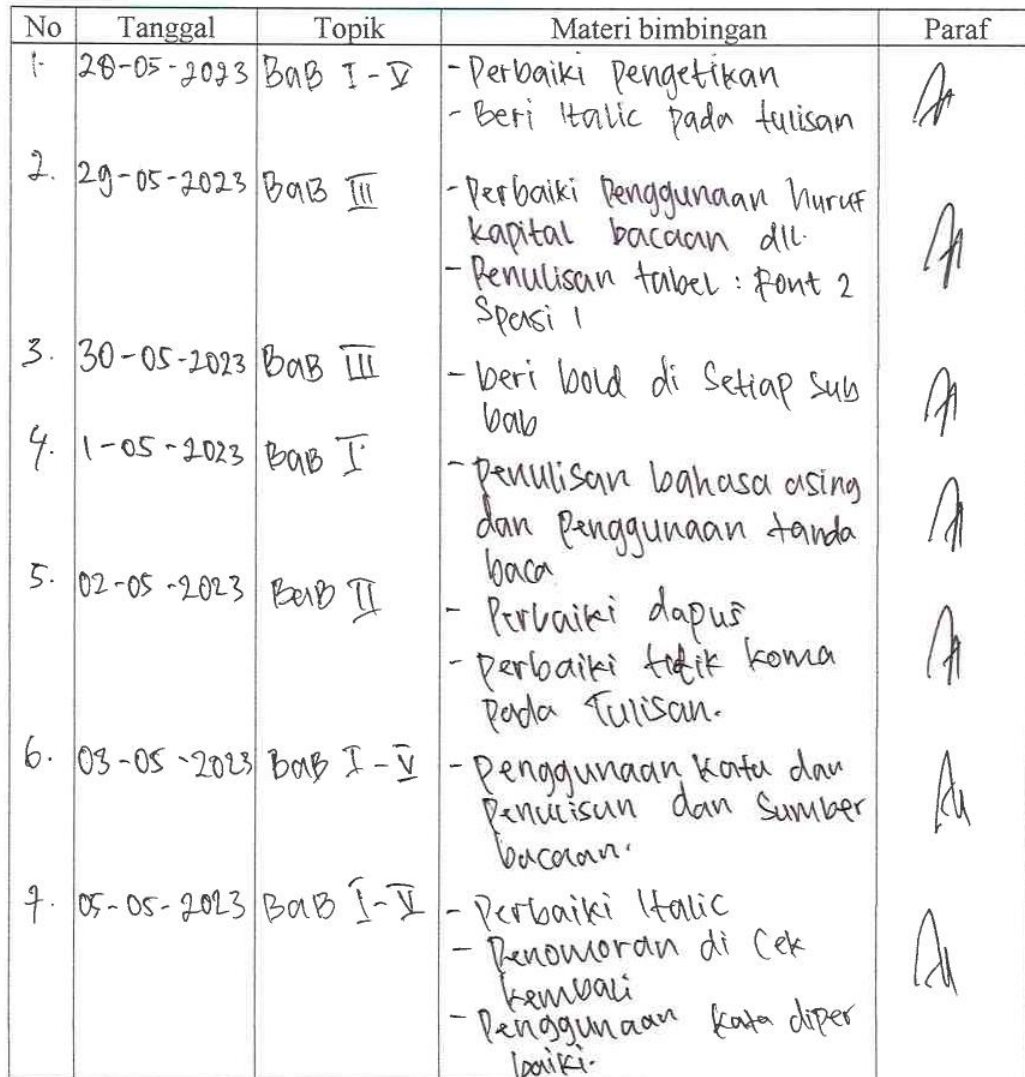 No Tanggal Topik Materi bimbingan Paraf
1. 28-05-2023 BaB I - V - Perbaiki pengetikan
- Beri Italic pada tulisan
2. 29-05-2023 BaB III - Perbaiki Penggunaan huruf
kapital bacaan dll.
- Penulisan tabel : Font 2
Spasi 1
3. 30-05-2023 BaB III - beri bold di Setiap sub
bab
4. 1-05-2023 BaB I - penulisan bahasa asing
dan Penggunaan tanda
baca
5. 02-05-2023 BaB II - Perbaiki dapus
- perbaiki titik koma
pada Tulisan.
6. 03-05-2023 BaB I - V - Penggunaan Kata dan
Penulisan dan Sumber
bacaan.
7. 05-05-2023 BaB I - V - Perbaiki Italic
- Penomoran di Cek
kembali
- Penggunaan kata diper
baiki.